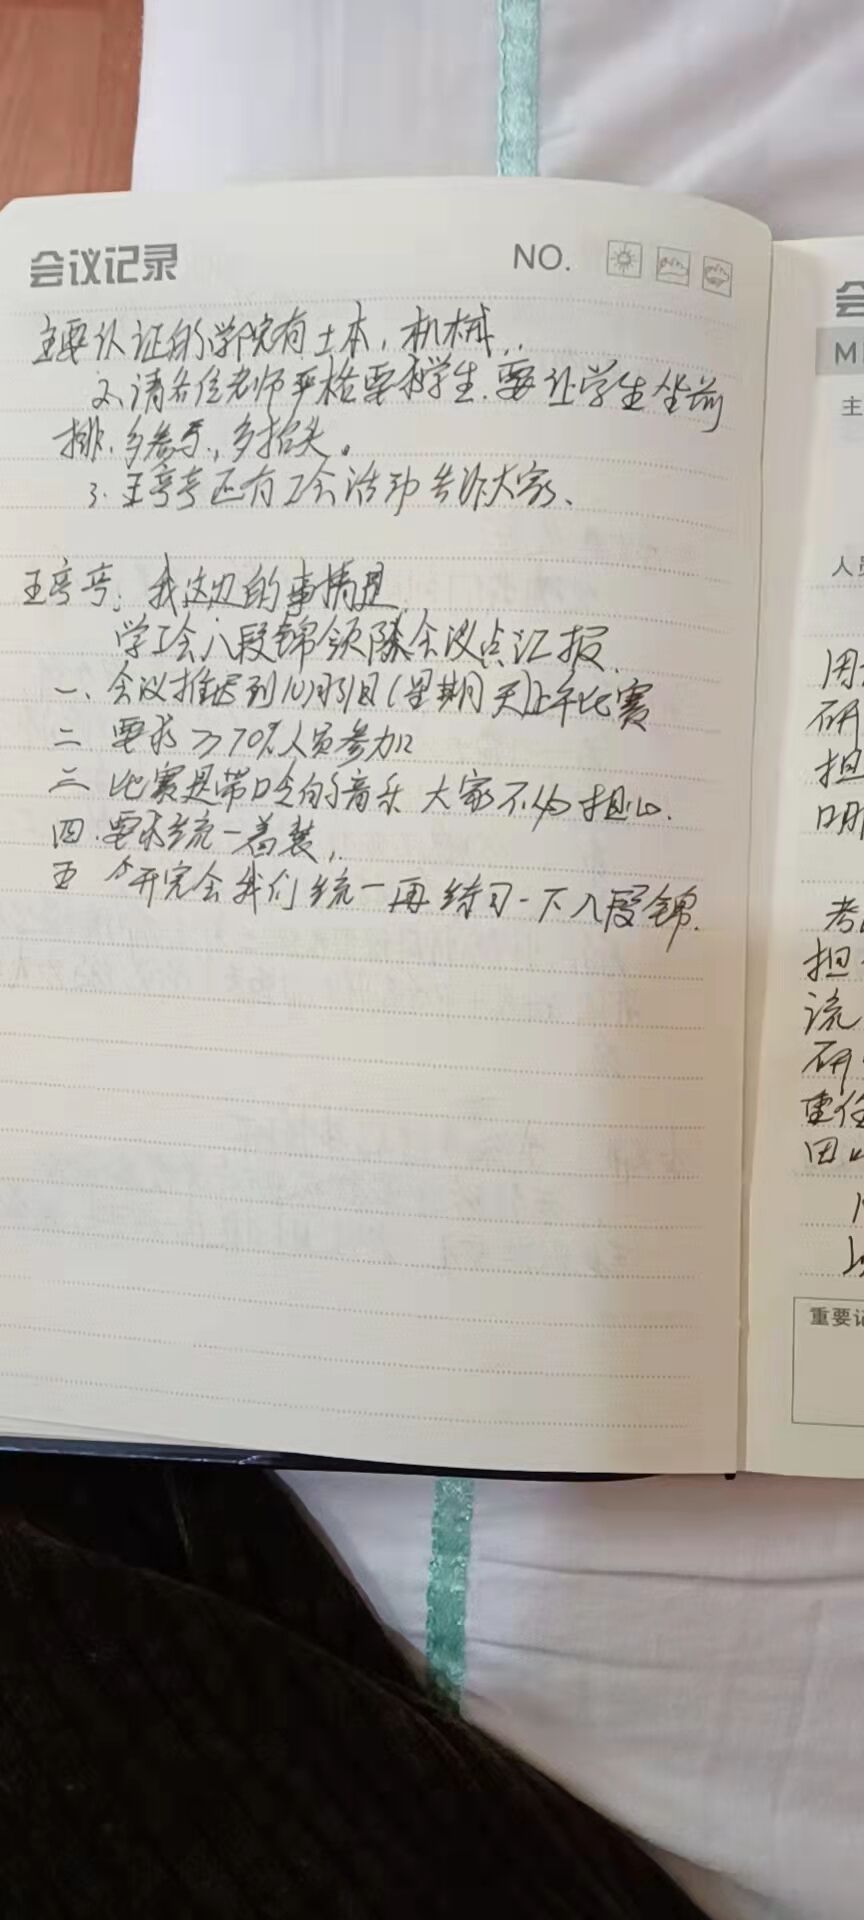 会议记录 NO.
主要认证的学院有土木，机械，
2、请各位老师严格要求学生，要让学生坐前
排，多参与，多抬头。
3、王弯弯还有工会活动告诉大家、
王弯弯：我这边的事情是
学工会八段锦领队会议点汇报
一、会议推迟到10月31日(星期天)上午比赛
二 要求≥70%人员参加
三 比赛是带口令的音乐 大家不必担心.
四.要求统一着装，
五 今开完会我们统一再练习一下八段锦.
会
主
人员
用
研
担
明
考
担
流
研
重任
田
重要记